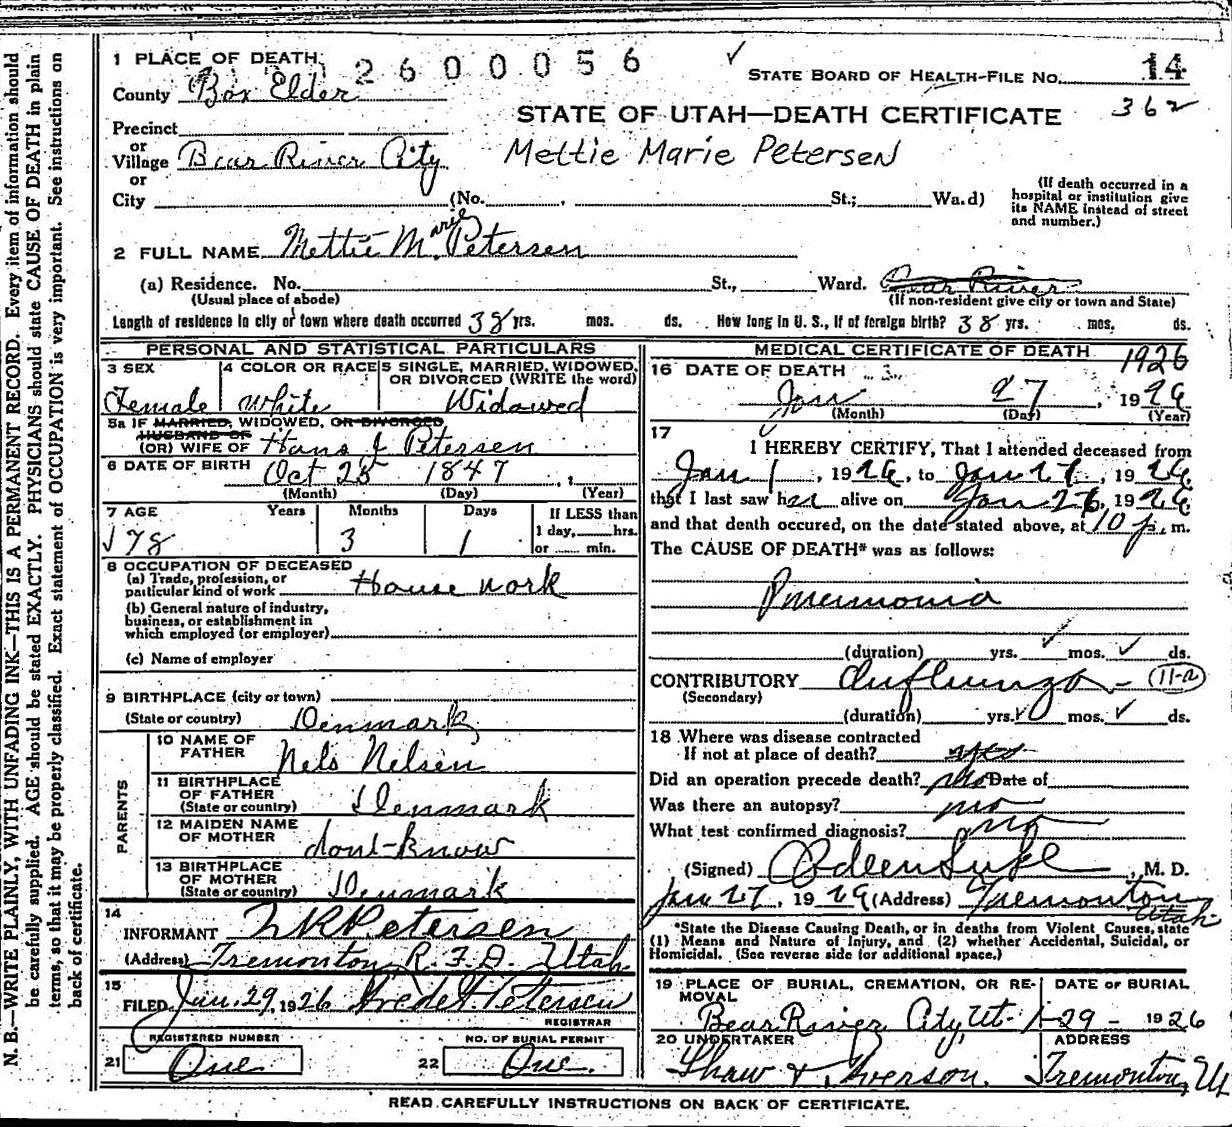 1 PLACE OF DEATH 2600056 ✓ STATE BOARD OF HEALTH-FILE NO. 14
County Box Elder
STATE OF UTAH—DEATH CERTIFICATE 362
Precinct
or
Village Bear River City Mettie Marie Petersen
or
City (No. , St.; Ward)
(If death occurred in a hospital or institution give its NAME instead of street and number.)
2 FULL NAME Mettie Marie Petersen
(a) Residence. No. St., Ward. Bear River
(Usual place of abode) (If non-resident give city or town and State)
Length of residence in city or town where death occurred 38 yrs. mos. ds. How long in U. S., if of foreign birth? 38 yrs. mos. ds.
PERSONAL AND STATISTICAL PARTICULARS
3 SEX 4 COLOR OR RACE 5 SINGLE, MARRIED, WIDOWED, OR DIVORCED (WRITE the word)
Female White Widowed
5a IF MARRIED, WIDOWED, OR DIVORCED
HUSBAND OF
(OR) WIFE OF Hans J Petersen
6 DATE OF BIRTH Oct 25 1847
(Month) (Day) (Year)
7 AGE Years Months Days If LESS than
1 day, hrs.
or min.
78 3 1
8 OCCUPATION OF DECEASED
(a) Trade, profession, or
particular kind of work House work
(b) General nature of industry,
business, or establishment in
which employed (or employer)
(c) Name of employer
9 BIRTHPLACE (city or town)
(State or country) Denmark
PARENTS
10 NAME OF
FATHER Nels Nelsen
11 BIRTHPLACE
OF FATHER
(State or country) Denmark
12 MAIDEN NAME
OF MOTHER dont-know
13 BIRTHPLACE
OF MOTHER
(State or country) Denmark
14
INFORMANT Petersen
(Address) Tremonton R.F.D. Utah
15
FILED Jan. 29, 1926 Petersen
REGISTRAR
REGISTERED NUMBER NO. OF BURIAL PERMIT
21 One 22 One.
MEDICAL CERTIFICATE OF DEATH 1926
16 DATE OF DEATH
Jan 27, 1926
(Month) (Day) (Year)
17
I HEREBY CERTIFY, That I attended deceased from
Jan 1, 1926, to Jan 27, 1926
that I last saw her alive on Jan 26, 1926
and that death occured, on the date stated above, at 10 p. m.
The CAUSE OF DEATH* was as follows:
Pneumonia
(duration) yrs. ✓ mos. ✓ ds.
CONTRIBUTORY Influenza - 11-a
(Secondary)
(duration) yrs. ✓ mos. ✓ ds.
18 Where was disease contracted
If not at place of death? yes
Did an operation precede death? no Date of
Was there an autopsy? no
What test confirmed diagnosis?
(Signed) M. D.
Jan 27, 1926 (Address) Tremonton Utah
*State the Disease Causing Death, or in deaths from Violent Causes, state
(1) Means and Nature of Injury, and (2) whether Accidental, Suicidal, or
Homicidal. (See reverse side for additional space.)
19 PLACE OF BURIAL, CREMATION, OR RE- DATE OF BURIAL
MOVAL
Bear River City, Ut. 1-29- 1926
20 UNDERTAKER ADDRESS
Shaw & Iverson. Tremonton, Ut
READ CAREFULLY INSTRUCTIONS ON BACK OF CERTIFICATE.
N. B.—WRITE PLAINLY, WITH UNFADING INK—THIS IS A PERMANENT RECORD. Every item of information should
be carefully supplied. AGE should be stated EXACTLY. PHYSICIANS should state CAUSE OF DEATH in plain
terms, so that it may be properly classified. Exact statement of OCCUPATION is very important. See instructions on
back of certificate.